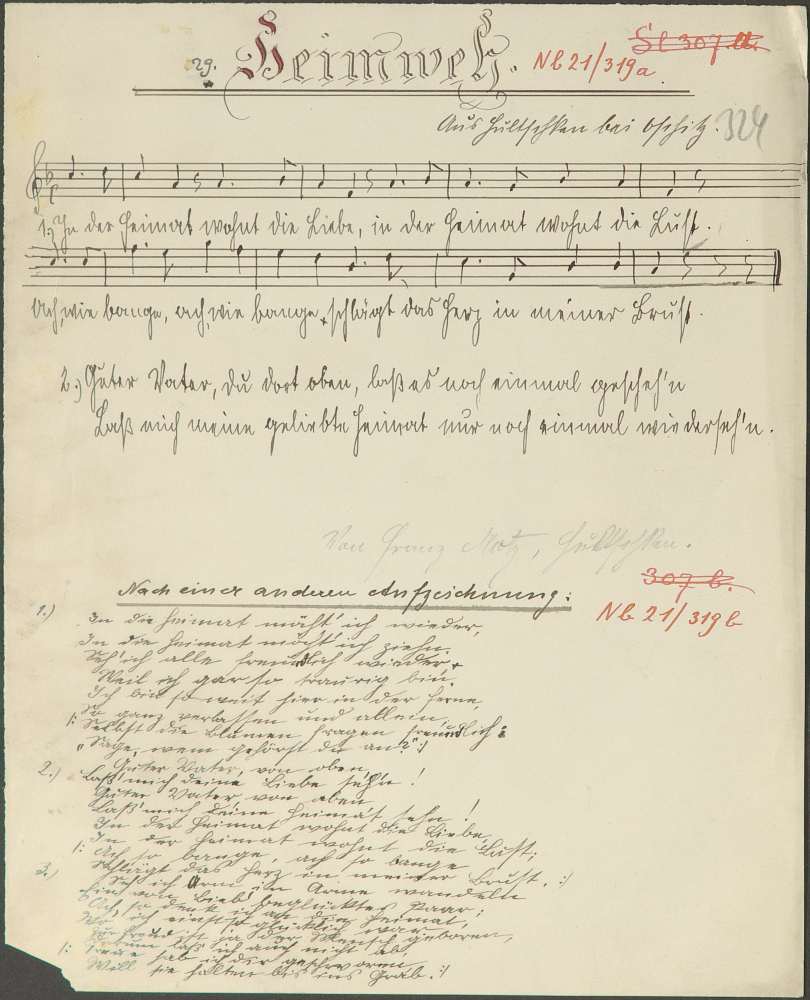 29. Heimweh.
Sl 307 a.
Nb 21/319a
324
Aus Hultschken bei Oschitz.
1.) In der Heimat wohnt die Liebe, in der Heimat wohnt die Lust.
Ach, wie bange, ach, wie bange, schlägt das Herz in meiner Brust.
2.) Guter Vater, du dort oben, laß es noch einmal gescheh'n
Laß mich meine geliebte Heimat nur noch einmal wiederseh'n.
Von Franz Motz, Hultschken.
Nach einer anderen Aufzeichnung:
307 b.
Nb 21/319b
1.) In die Heimat möcht' ich wieder,
In die Heimat möcht' ich ziehn.
Seh' ich alle freundlich wieder,
Weil ich gar so traurig bin.
Ich bin so weit hier in der Ferne,
So ganz verlassen und allein,
|: Selbst die Blumen fragen freundlich:
"Sage, wem gehörst du an?" :|
2.) Guter Vater, von oben,
Laß' mich deine Liebe seh'n!
Guter Vater, von oben,
Laß' mich deine Heimat sehn!
In der Heimat wohnt die Liebe,
In der Heimat wohnt die Lust;
|: Ach so bange, ach so bange
Schlägt das Herz in meiner Brust. :|
3.) Seh' ich Arm in Arme wandeln
Ein von Lieb' beglücktes Paar;
Ach, so denk ich an die Heimat,
Wo ich einst so glücklich war
ist ja der Mensch geboren,
laß ich auch nicht ab,
|: Treue hab ich dir geschworen,
Will sie halten bis ins Grab. :|